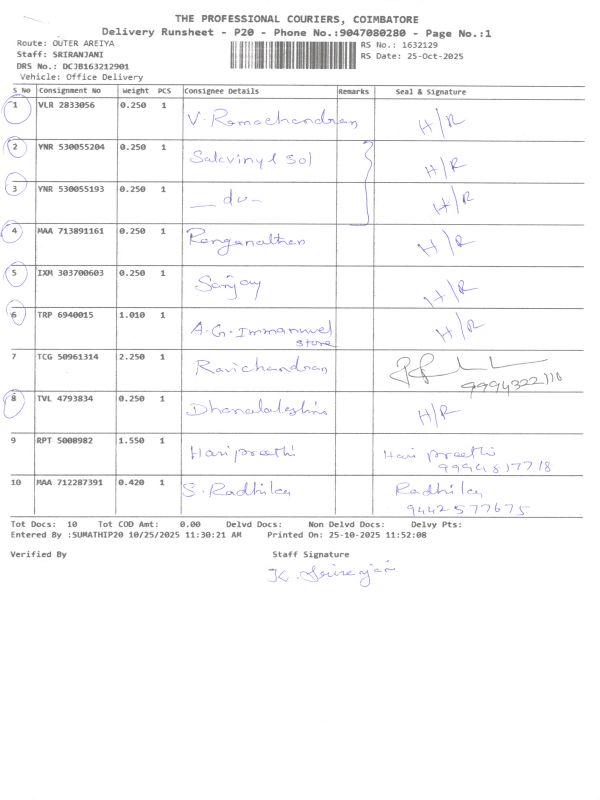 THE PROFESSIONAL COURIERS, COIMBATORE
Delivery Runsheet - P20 - Phone No.:9047080280 - Page No.:1
Route: OUTER AREIYA
RS No.: 1632129
Staff: SRIRANJANI
RS Date: 25-Oct-2025
DRS No.: DCJB163212901
Vehicle: Office Delivery
S No Consignment No Weight PCS Consignee Details Remarks Seal & Signature
1 VLR 2833056 0.250 1 V. Ramachandran H/R
2 YNR 530055204 0.250 1 Sakvinyl sol H/R
3 YNR 530055193 0.250 1 — do - H/R
4 MAA 713891161 0.250 1 Renganathan H/R
5 IXM 303700603 0.250 1 Sanjay H/R
6 TRP 6940015 1.010 1 A.G. Immanuvel store H/R
7 TCG 50961314 2.250 1 Ravichandran
8 TVL 4793834 0.250 1 H/R
9 RPT 5008982 1.550 1 Hari preethi Hari preethi
10 MAA 712287391 0.420 1 S. Radhika Radhika
9442577675
Tot Docs: 10 Tot COD Amt: 0.00 Delvd Docs: Non Delvd Docs: Delvy Pts:
Entered By :SUMATHIP20 10/25/2025 11:30:21 AM Printed On: 25-10-2025 11:52:08
Verified By Staff Signature
K. Sriranjani